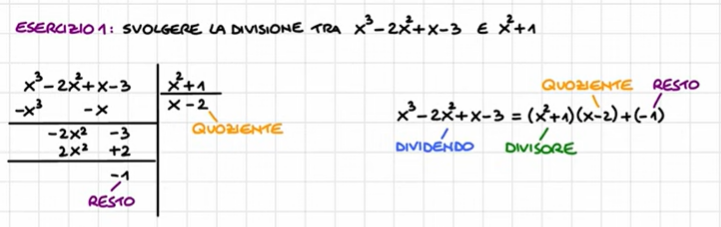 ESERCIZIO 1: SVOLGERE LA DIVISIONE TRA x³-2x²+x-3 E x²+1
x³-2x²+x-3 x²+1
-x³ -x x-2
QUOZIENTE
-2x² -3
2x² +2
-1
RESTO
QUOZIENTE RESTO
x³-2x²+x-3 = (x²+1)(x-2)+(-1)
DIVIDENDO DIVISORE